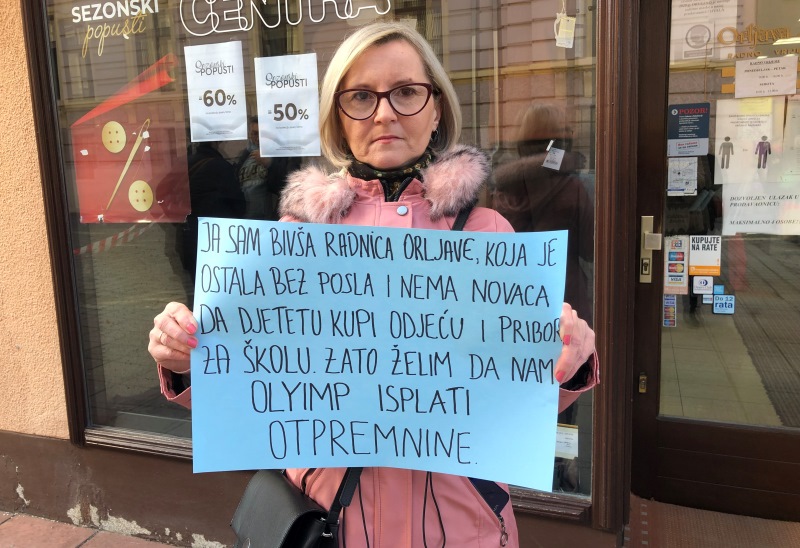 SEZONSKI
popusti
CENTRA
SEZONSKI
POPUSTI
60%
POPUSTI
50%
Orljava
POZOR!
KUPUJTE
NA RATE
Do 12
rata
JA SAM BIVŠA RADNICA ORLJAVE, KOJA JE
OSTALA BEZ POSLA I NEMA NOVACA
DA DJETETU KUPI ODJEĆU I PRIBOR
ZA ŠKOLU. ZATO ŽELIM DA NAM
OLYIMP ISPLATI
OTPREMNINE.